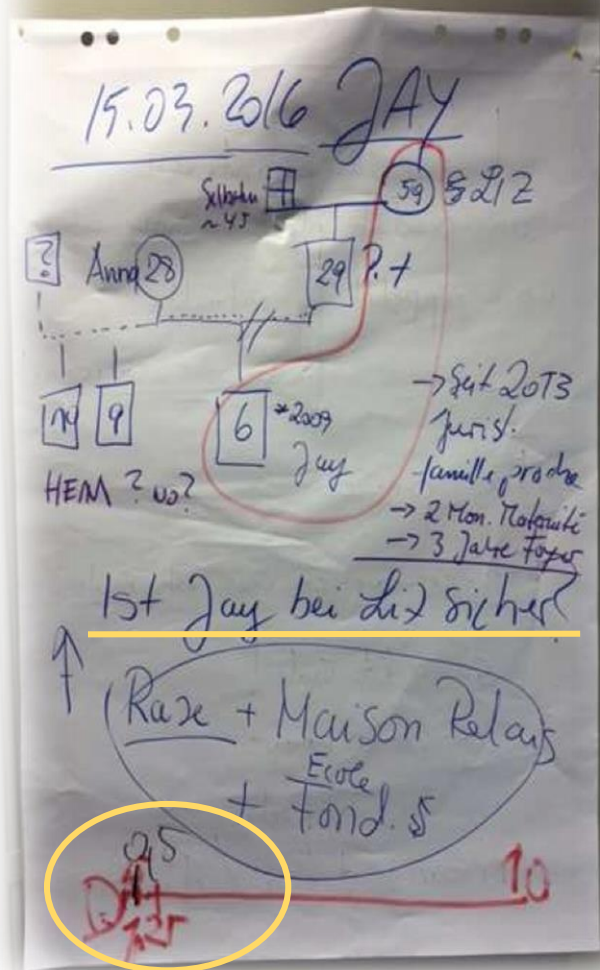 15.03.2016 JAY
59 & LIZ
~ 45
? Anna 28 29 ? +
14 9 6 *2009
Jay
HEIM? wo?
→ Seit 2013
Jurist.
famille proche
→ 2 Mon. Maternité
→ 3 Jahre Foyer
Ist Jay bei Liz sicher?
Raxe + Maison Relais
Ecole
+ Fond.
0,5
10